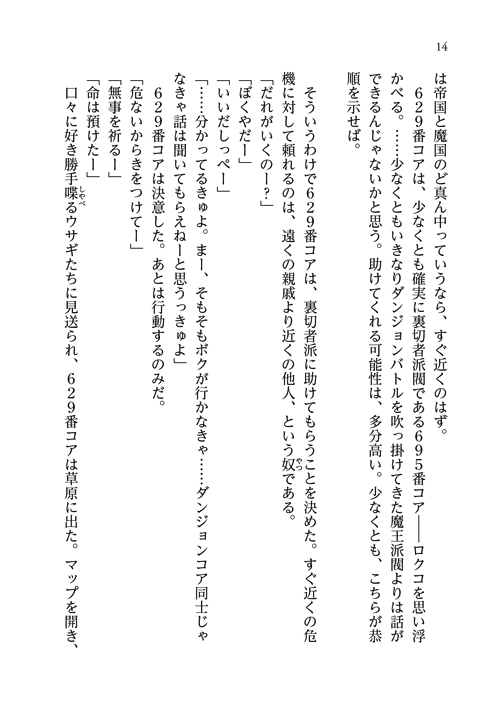 14
は帝国と魔国のど真ん中っていうなら、すぐ近くのはず。
６２９番コアは、少なくとも確実に裏切者派閥である６９５番コア――ロクコを思い浮
かべる。……少なくともいきなりダンジョンバトルを吹っ掛けてきた魔王派閥よりは話が
できるんじゃないかと思う。助けてくれる可能性は、多分高い。少なくとも、こちらが恭
順を示せば。
そういうわけで６２９番コアは、裏切者派に助けてもらうことを決めた。すぐ近くの危
機に対して頼れるのは、遠くの親戚より近くの他人、という奴やつである。
「だれがいくのー？」
「ぼくやだー」
「いいだしっぺー」
「……分かってるきゅよ。まー、そもそもボクが行かなきゃ……ダンジョンコア同士じゃ
なきゃ話は聞いてもらえねーと思うっきゅよ」
６２９番コアは決意した。あとは行動するのみだ。
「危ないからきをつけてー」
「無事を祈るー」
「命は預けたー」
口々に好き勝手喋しゃべるウサギたちに見送られ、６２９番コアは草原に出た。マップを開き、